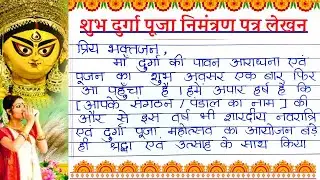 शुभ दुर्गा पूजा निमंत्रण पत्र लेखन
प्रिय भक्तजन,
माँ दुर्गा की पावन आराधना एवं
पूजन का शुभ अवसर एक बार फिर
आ पहुंचा है। हमें अपार हर्ष है कि
[आपके संगठन / पंडाल का नाम] की
और से इस वर्ष भी शारदीय नवरात्रि
एवं दुर्गा पूजा महोत्सव का आयोजन बड़े
ही श्रद्धा एवं उत्साह के साथ किया